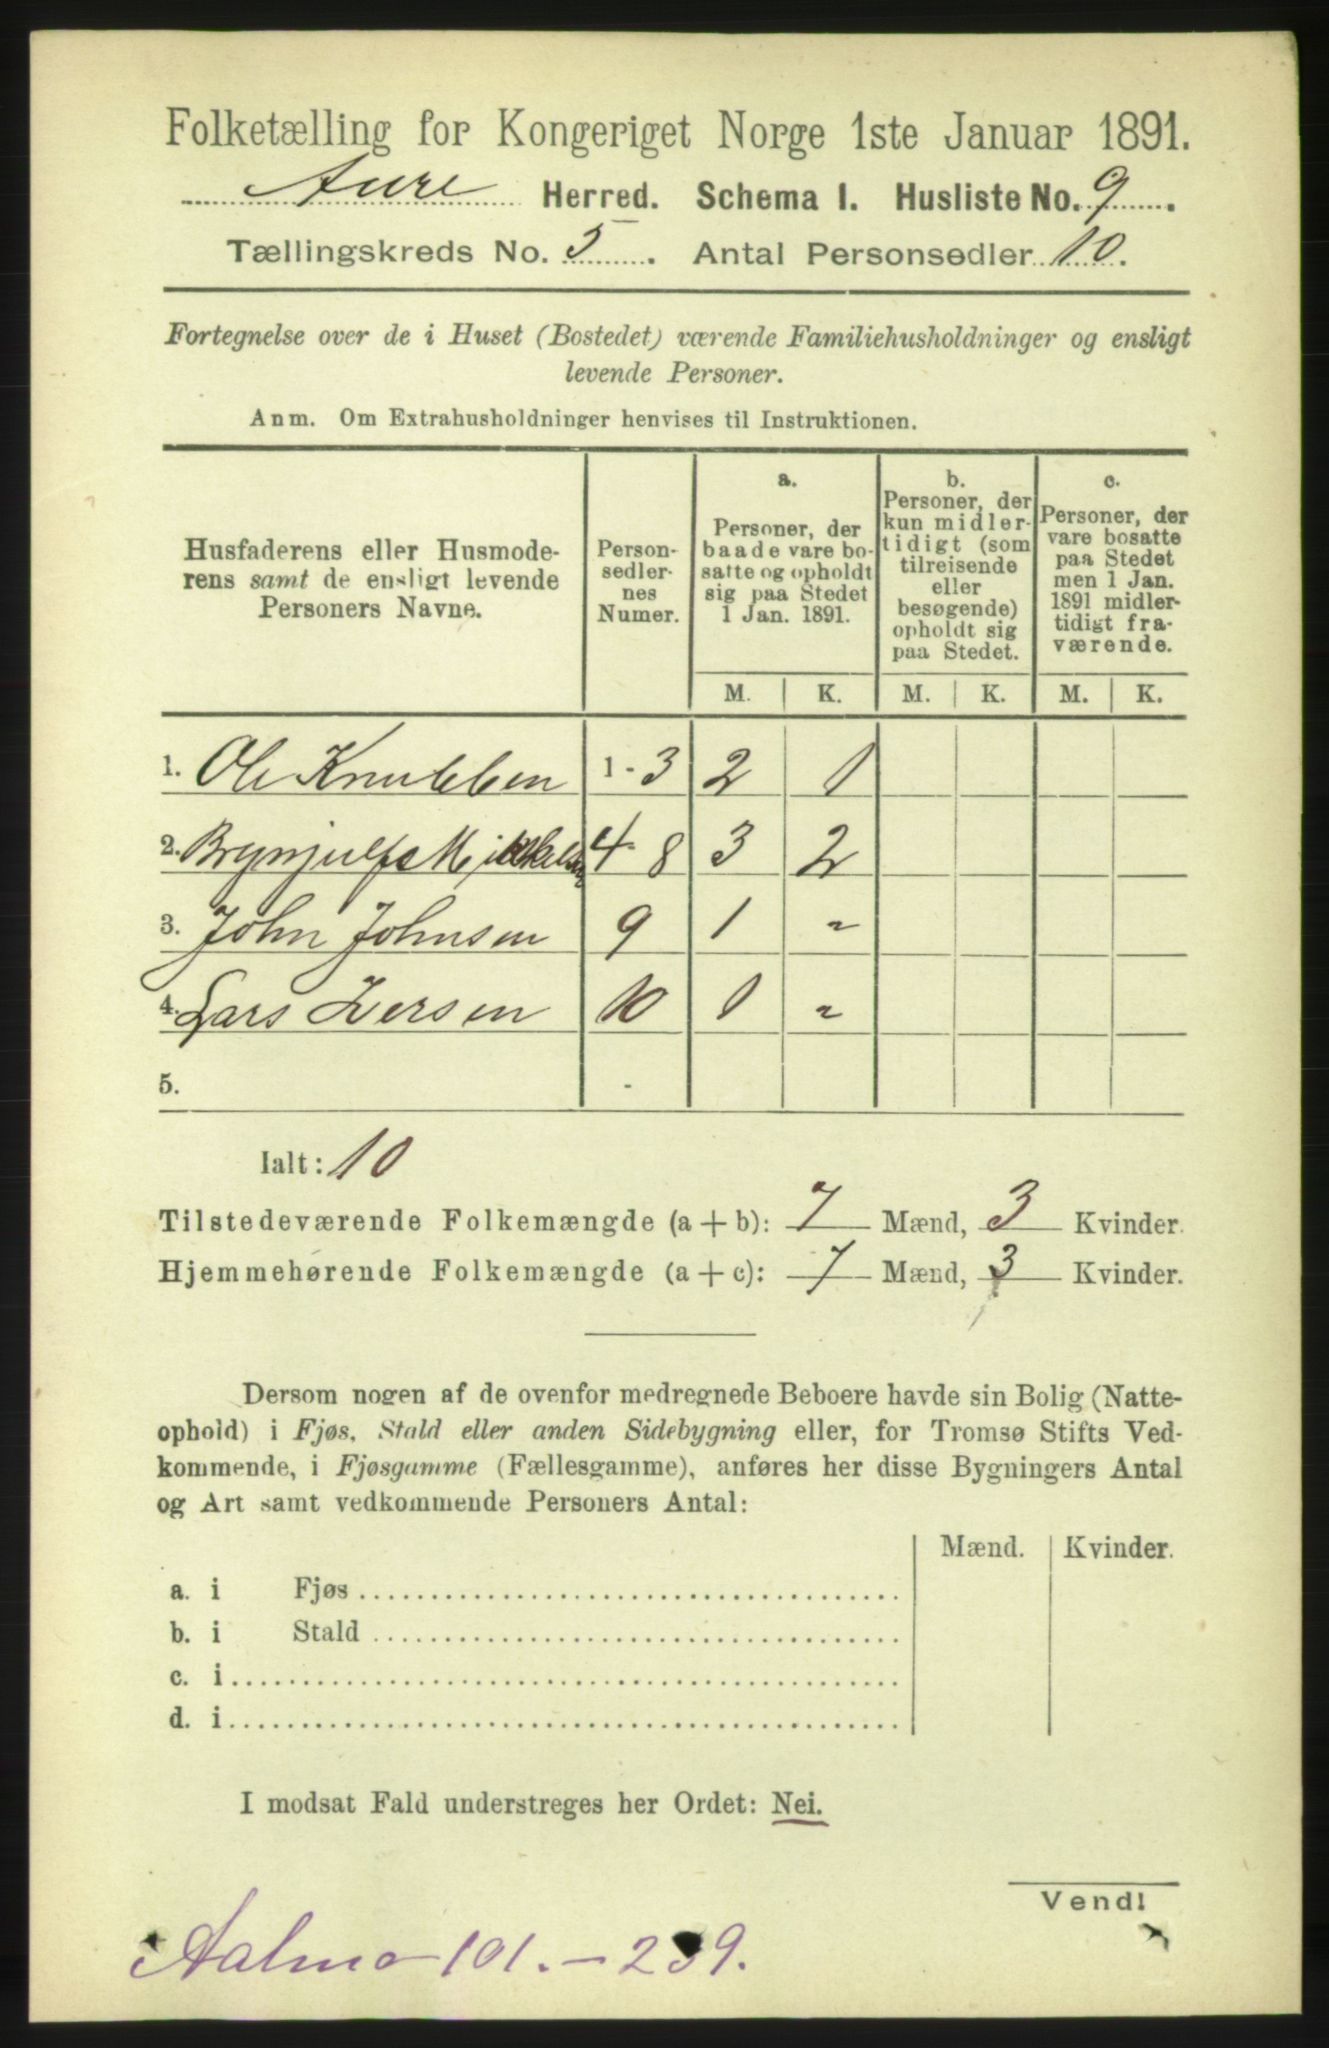 Folketælling for Kongeriget Norge 1ste Januar 1891.
Aure Herred. Schema I. Husliste No. 9.
Tællingskreds No. 5. Antal Personsedler 10.
Fortegnelse over de i Huset (Bostedet) værende Familiehusholdninger og ensligt
levende Personer.
Anm. Om Extrahusholdninger henvises til Instruktionen.
Husfaderens eller Husmode-
rens samt de ensligt levende
Personers Navne.
Person-
sedler-
nes
Numer.
a.
Personer, der
baade vare bo-
satte og opholdt
sig paa Stedet
1 Jan. 1891.
b.
Personer, der
kun midler-
tidigt (som
tilreisende
eller
besøgende)
opholdt sig
paa Stedet.
c.
Personer, der
vare bosatte
paa Stedet
men 1 Jan.
1891 midler-
tidigt fra-
værende.
M. K. M. K. M. K.
1. Ole Knubben 1 - 3 2 1
2. Brynjulf Mikkelsen 4 - 8 3 2
3. John Johnsen 9 1 "
4. Lars Iversen 10 1 "
5. -
Ialt: 10
Tilstedeværende Folkemængde (a + b): 7 Mænd, 3 Kvinder.
Hjemmehørende Folkemængde (a + c): 7 Mænd, 3 Kvinder.
Dersom nogen af de ovenfor medregnede Beboere havde sin Bolig (Natte-
ophold) i Fjøs, Stald eller anden Sidebygning eller, for Tromsø Stifts Ved-
kommende, i Fjøsgamme (Fællesgamme), anføres her disse Bygningers Antal
og Art samt vedkommende Personers Antal:
Mænd. Kvinder.
a. i Fjøs
b. i Stald
c. i
d. i
I modsat Fald understreges her Ordet: Nei.
Vend!
Aalmo 101. - 239.